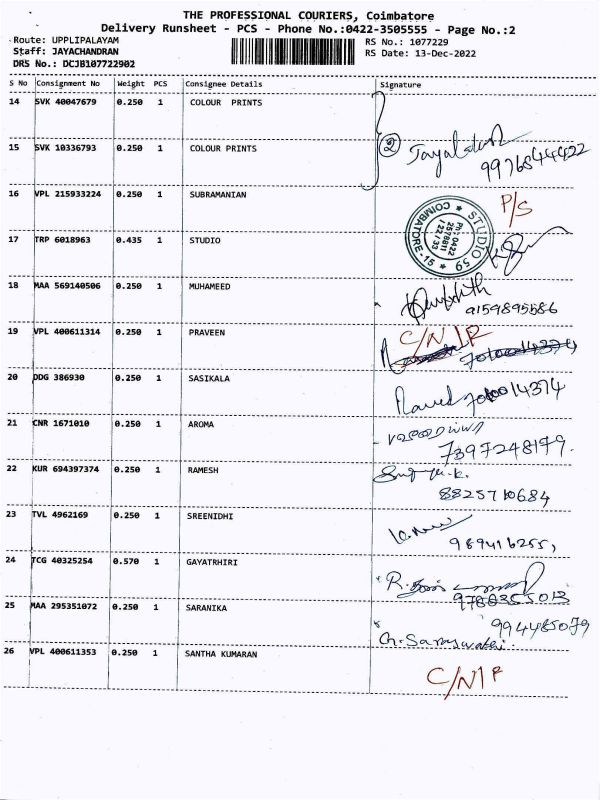 THE PROFESSIONAL COURIERS, Coimbatore
Delivery Runsheet - PCS - Phone No.:0422-3505555 - Page No.:2
Route: UPPLIPALAYAM
RS No.: 1077229
Staff: JAYACHANDRAN
RS Date: 13-Dec-2022
DRS No.: DCJB107722902
S No Consignment No Weight PCS Consignee Details Signature
14 SVK 40047679 0.250 1 COLOUR PRINTS
2
15 SVK 10336793 0.250 1 COLOUR PRINTS
9976844422
16 VPL 215933224 0.250 1 SUBRAMANIAN P/S
17 TRP 6018963 0.435 1 STUDIO
STUDIO 59
COIMBATORE-15
Ph: 0422
2578811
/ 22 / 33
18 MAA 569140506 0.250 1 MUHAMEED
9159895586
19 VPL 400611314 0.250 1 PRAVEEN C/N/R
20 DDG 386930 0.250 1 SASIKALA
21 CNR 1671010 0.250 1 AROMA
7397248179.
22 KUR 694397374 0.250 1 RAMESH
8825710684
23 TVL 4962169 0.250 1 SREENIDHI
24 TCG 40325254 0.570 1 GAYATRHIRI
9780355013
25 MAA 295351072 0.250 1 SARANIKA
994485079
Ch. Saraswathi.
26 VPL 400611353 0.250 1 SANTHA KUMARAN
C/N/R